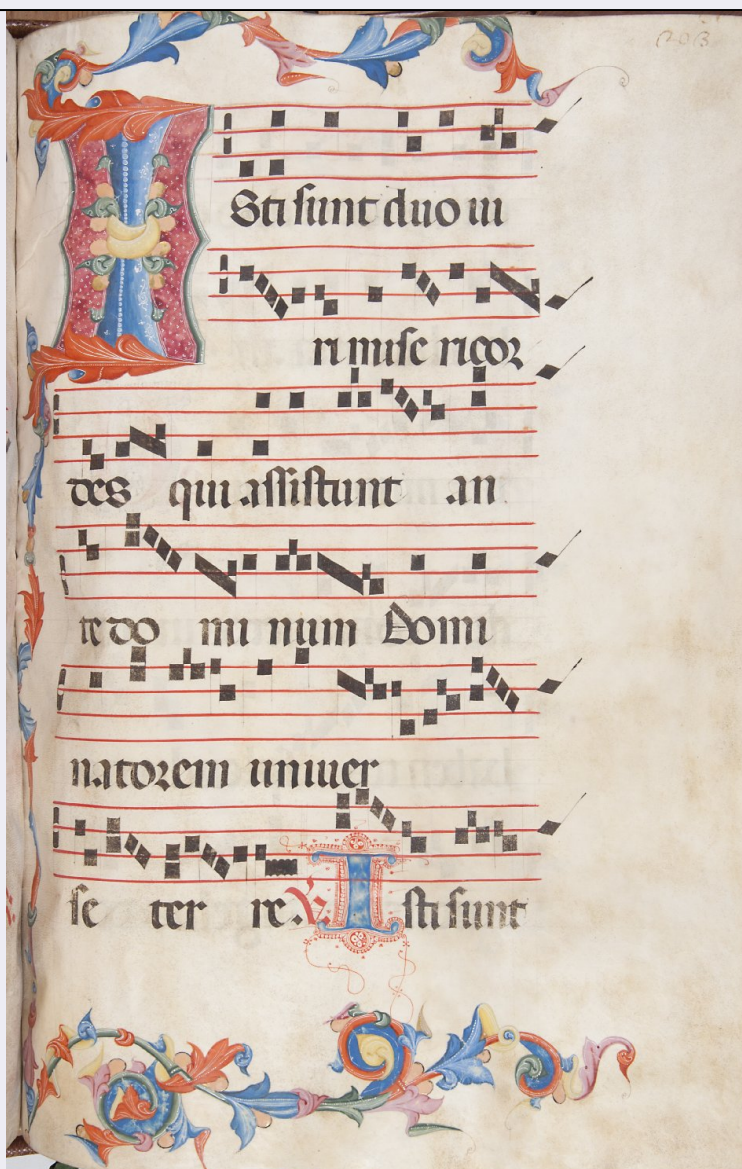 203
ISti sunt duo ui
ri mise ricor
des qui assistunt an
te do mi num Domi
natorem univer
se ter re. ℣. Isti sunt